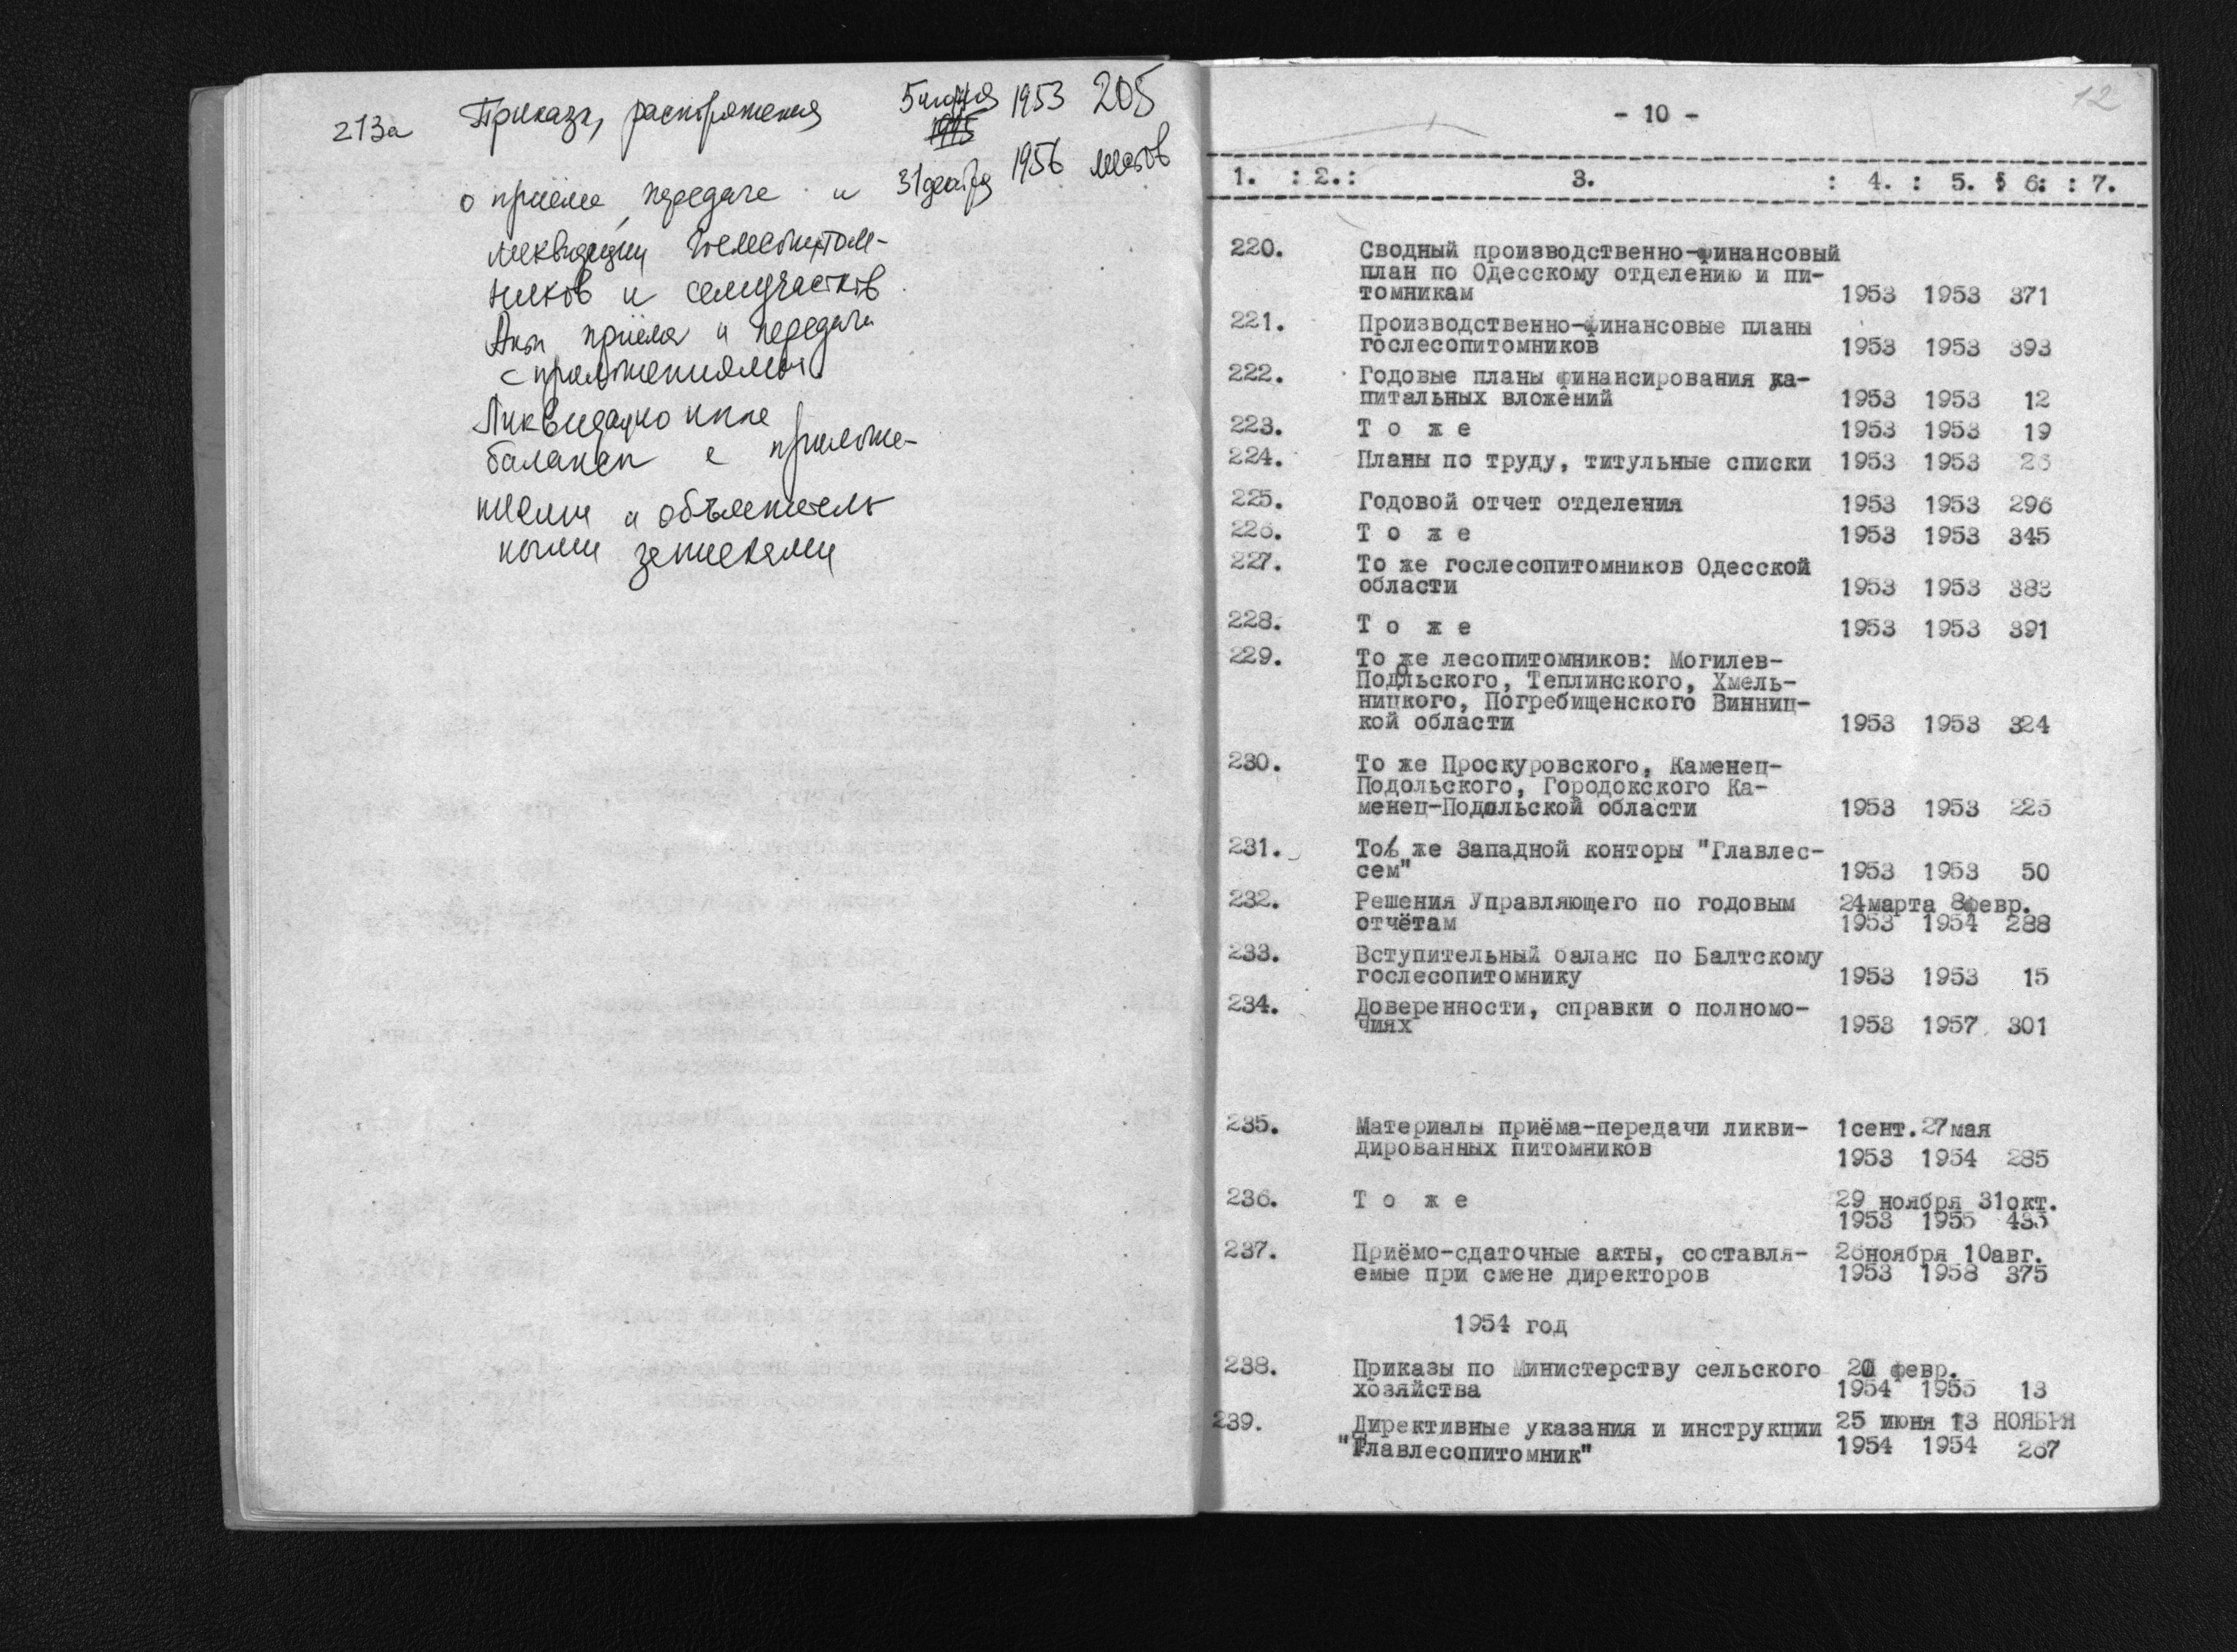 213а Приказы, распоряжения 5 1953 205
31 декабря 1956 листов
о приёме, передаче и
ликвидации гослесопитом-
ников и семучастков
Акты приёма и передачи
с приложениями
Ликвидационные
балансы с приложе-
ниями и объяснитель
ными записками
12
- 10 -
1. : 2. : 3. : 4. : 5. : 6. : 7.
220. Сводный производственно-финансовый
план по Одесскому отделению и пи-
томникам 1953 1953 371
221. Производственно-финансовые планы
гослесопитомников 1953 1953 393
222. Годовые планы финансирования ка-
питальных вложений 1953 1953 12
223. Т о ж е 1953 1953 19
224. Планы по труду, титульные списки 1953 1953
225. Годовой отчет отделения 1953 1953 296
226. Т о ж е 1953 1953 345
227. То же гослесопитомников Одесской
области 1953 1953 383
228. Т о ж е 1953 1953 391
229. То же лесопитомников: Могилев-
Подольского, Теплинского, Хмель-
ницкого, Погребищенского Винниц-
кой области 1953 1953 324
230. То же Проскуровского, Каменец-
Подольского, Городокского Ка-
менец-Подольской области 1953 1953 225
231. То же Западной конторы "Главлес-
сем" 1953 1953 50
232. Решения Управляющего по годовым 24марта 8февр.
отчётам 1953 1954 288
233. Вступительный баланс по Балтскому
гослесопитомнику 1953 1953 15
234. Доверенности, справки о полномо-
чиях 1953 1957 301
235. Материалы приёма-передачи ликви- 1сент. 27мая
дированных питомников 1953 1954 285
236. Т о ж е 29 ноября 31окт.
1953 1955 435
237. Приёмо-сдаточные акты, составля- 26ноября 10авг.
емые при смене директоров 1953 1958 375
1954 год
238. Приказы по Министерству сельского февр.
хозяйства 1954 1955 13
239. Директивные указания и инструкции 25 июня 13 НОЯБРЯ
"Главлесопитомник" 1954 1954 267